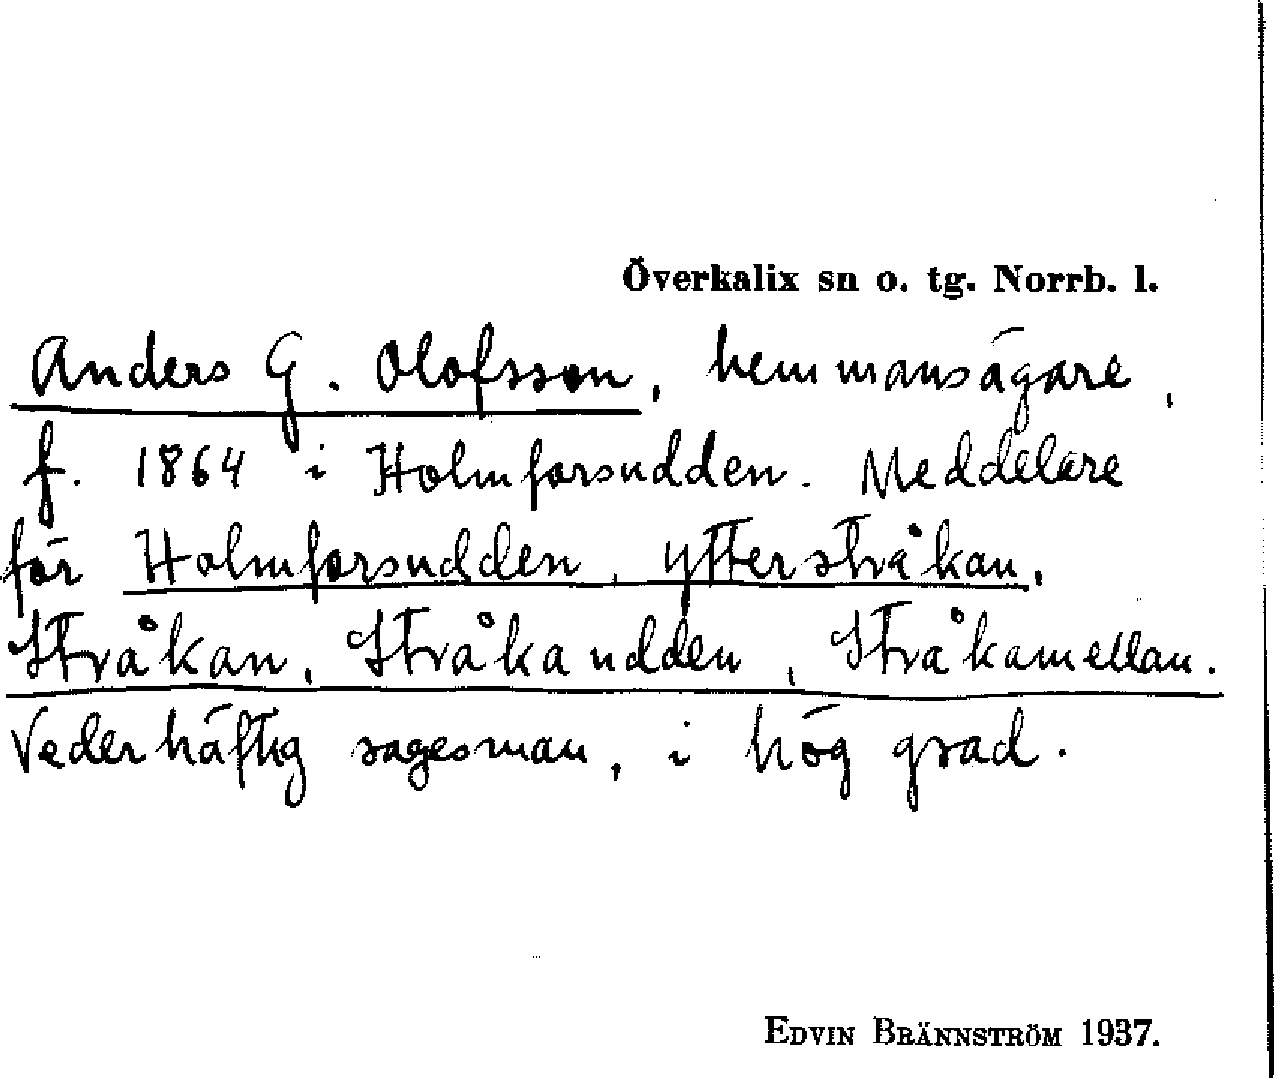 Överkalix sn o. tg. Norrb. l.
Anders G. Olofsson, hemmansägare,
f. 1864 i Holmforsudden. Meddelare
för Holmforsudden, Ytterstråkan,
Stråkan, Stråkaudden, Stråkamellan.
Vederhäftig sagesman, i hög grad.
EDVIN BRÄNNSTRÖM 1937.